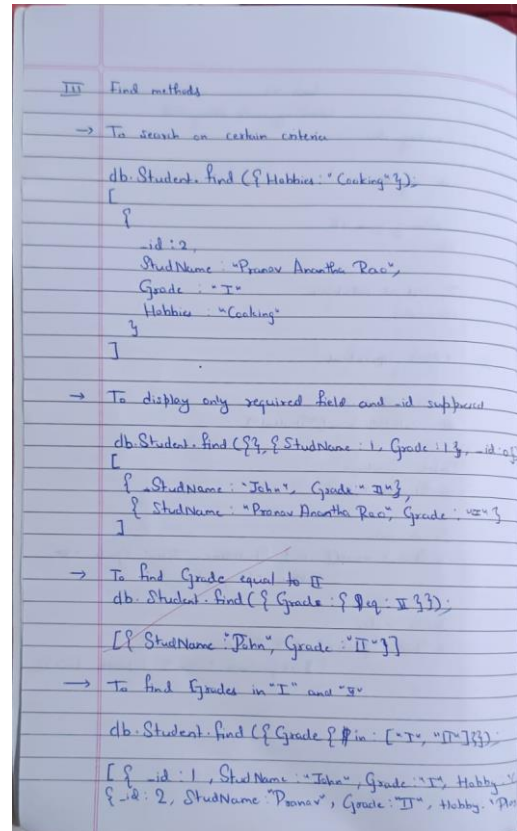 III Find methods
→ To search on certain criteria
db.Student.find({Hobbies: "Cooking"});
[
{
_id: 2,
StudName: "Pranav Anantha Rao",
Grade: "I"
Hobbies: "Cooking"
}
]
→ To display only required field and _id
db.Student.find({}, {StudName: 1, Grade: 1}, _id:0
[
{ _StudName: "John", Grade: "II"},
{ StudName: "Pranav Anantha Rao", Grade: "I"}
]
→ To find Grade equal to II
db.Student.find({Grade: {$eq: II}});
[{StudName: "John", Grade: "II"}]
→ To find Grades in "I" and
db.Student.find({Grade {$in: ["I", "II"]}});
[{ _id: 1, StudName: "John", Grade: "I", Hobby.
{_id: 2, StudName: "Pranav", Grade: "II", Hobby.